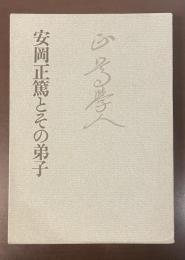 安岡正篤とその弟子